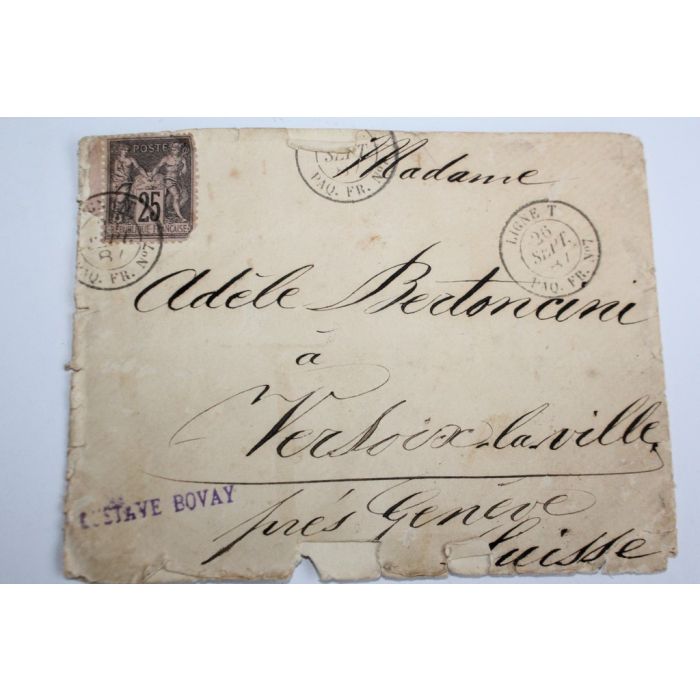 POSTE
25
REPUBLIQUE FRANÇAISE
PAQ. FR. Nº7
SEPT.
PAQ. FR. Nº
LIGNE T
26
SEPT.
PAQ. FR. Nº7
Madame
Adèle Bertoncini
à
Versoix-la-ville
près Genève
Suisse
GUSTAVE BOVAY